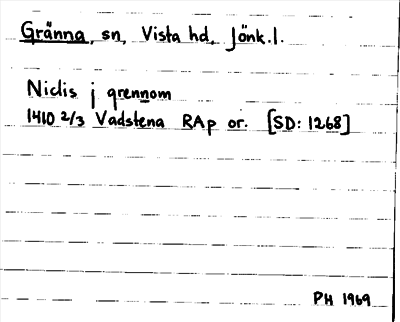 Gränna, sn, Vista hd, Jönk.l.
Niclis j grennom
1410 2/3 Vadstena RAp or. [SD: 1268]
PH 1969